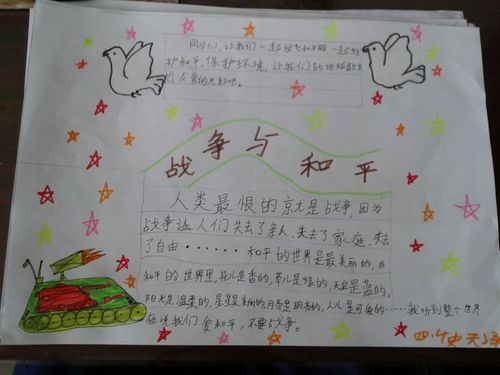 同学们，让我们一起放飞和平鸽，一起维
护和平，保护环境，让我们的地球散发
出友爱的光彩吧。
战争与和平
人类最恨的就是战争，因为
战争让人们失去了亲人，失去了家庭，失去
了自由······和平的世界是最美丽的，在
和平的世界里，花儿是香的，草儿是绿的，天空是蓝的，
阳光是温柔的，星星是美丽的，月亮是明亮的，人儿是可爱的······我听到整个世界
在说我们爱和平，不要战争。
四.4史天